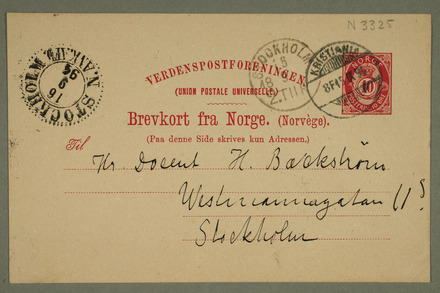 N 3325
VERDENSPOSTFORENINGEN.
(UNION POSTALE UNIVERSELLE)
Brevkort fra Norge. (Norvège).
(Paa denne Side skrives kun Adressen.)
Til
Hr. Docent H. Bäckström
Westmannagatan 11
Stockholm
STOCKHOLM
16
9
96
STOCKHOLM
KRISTIANIA
NORGE
10